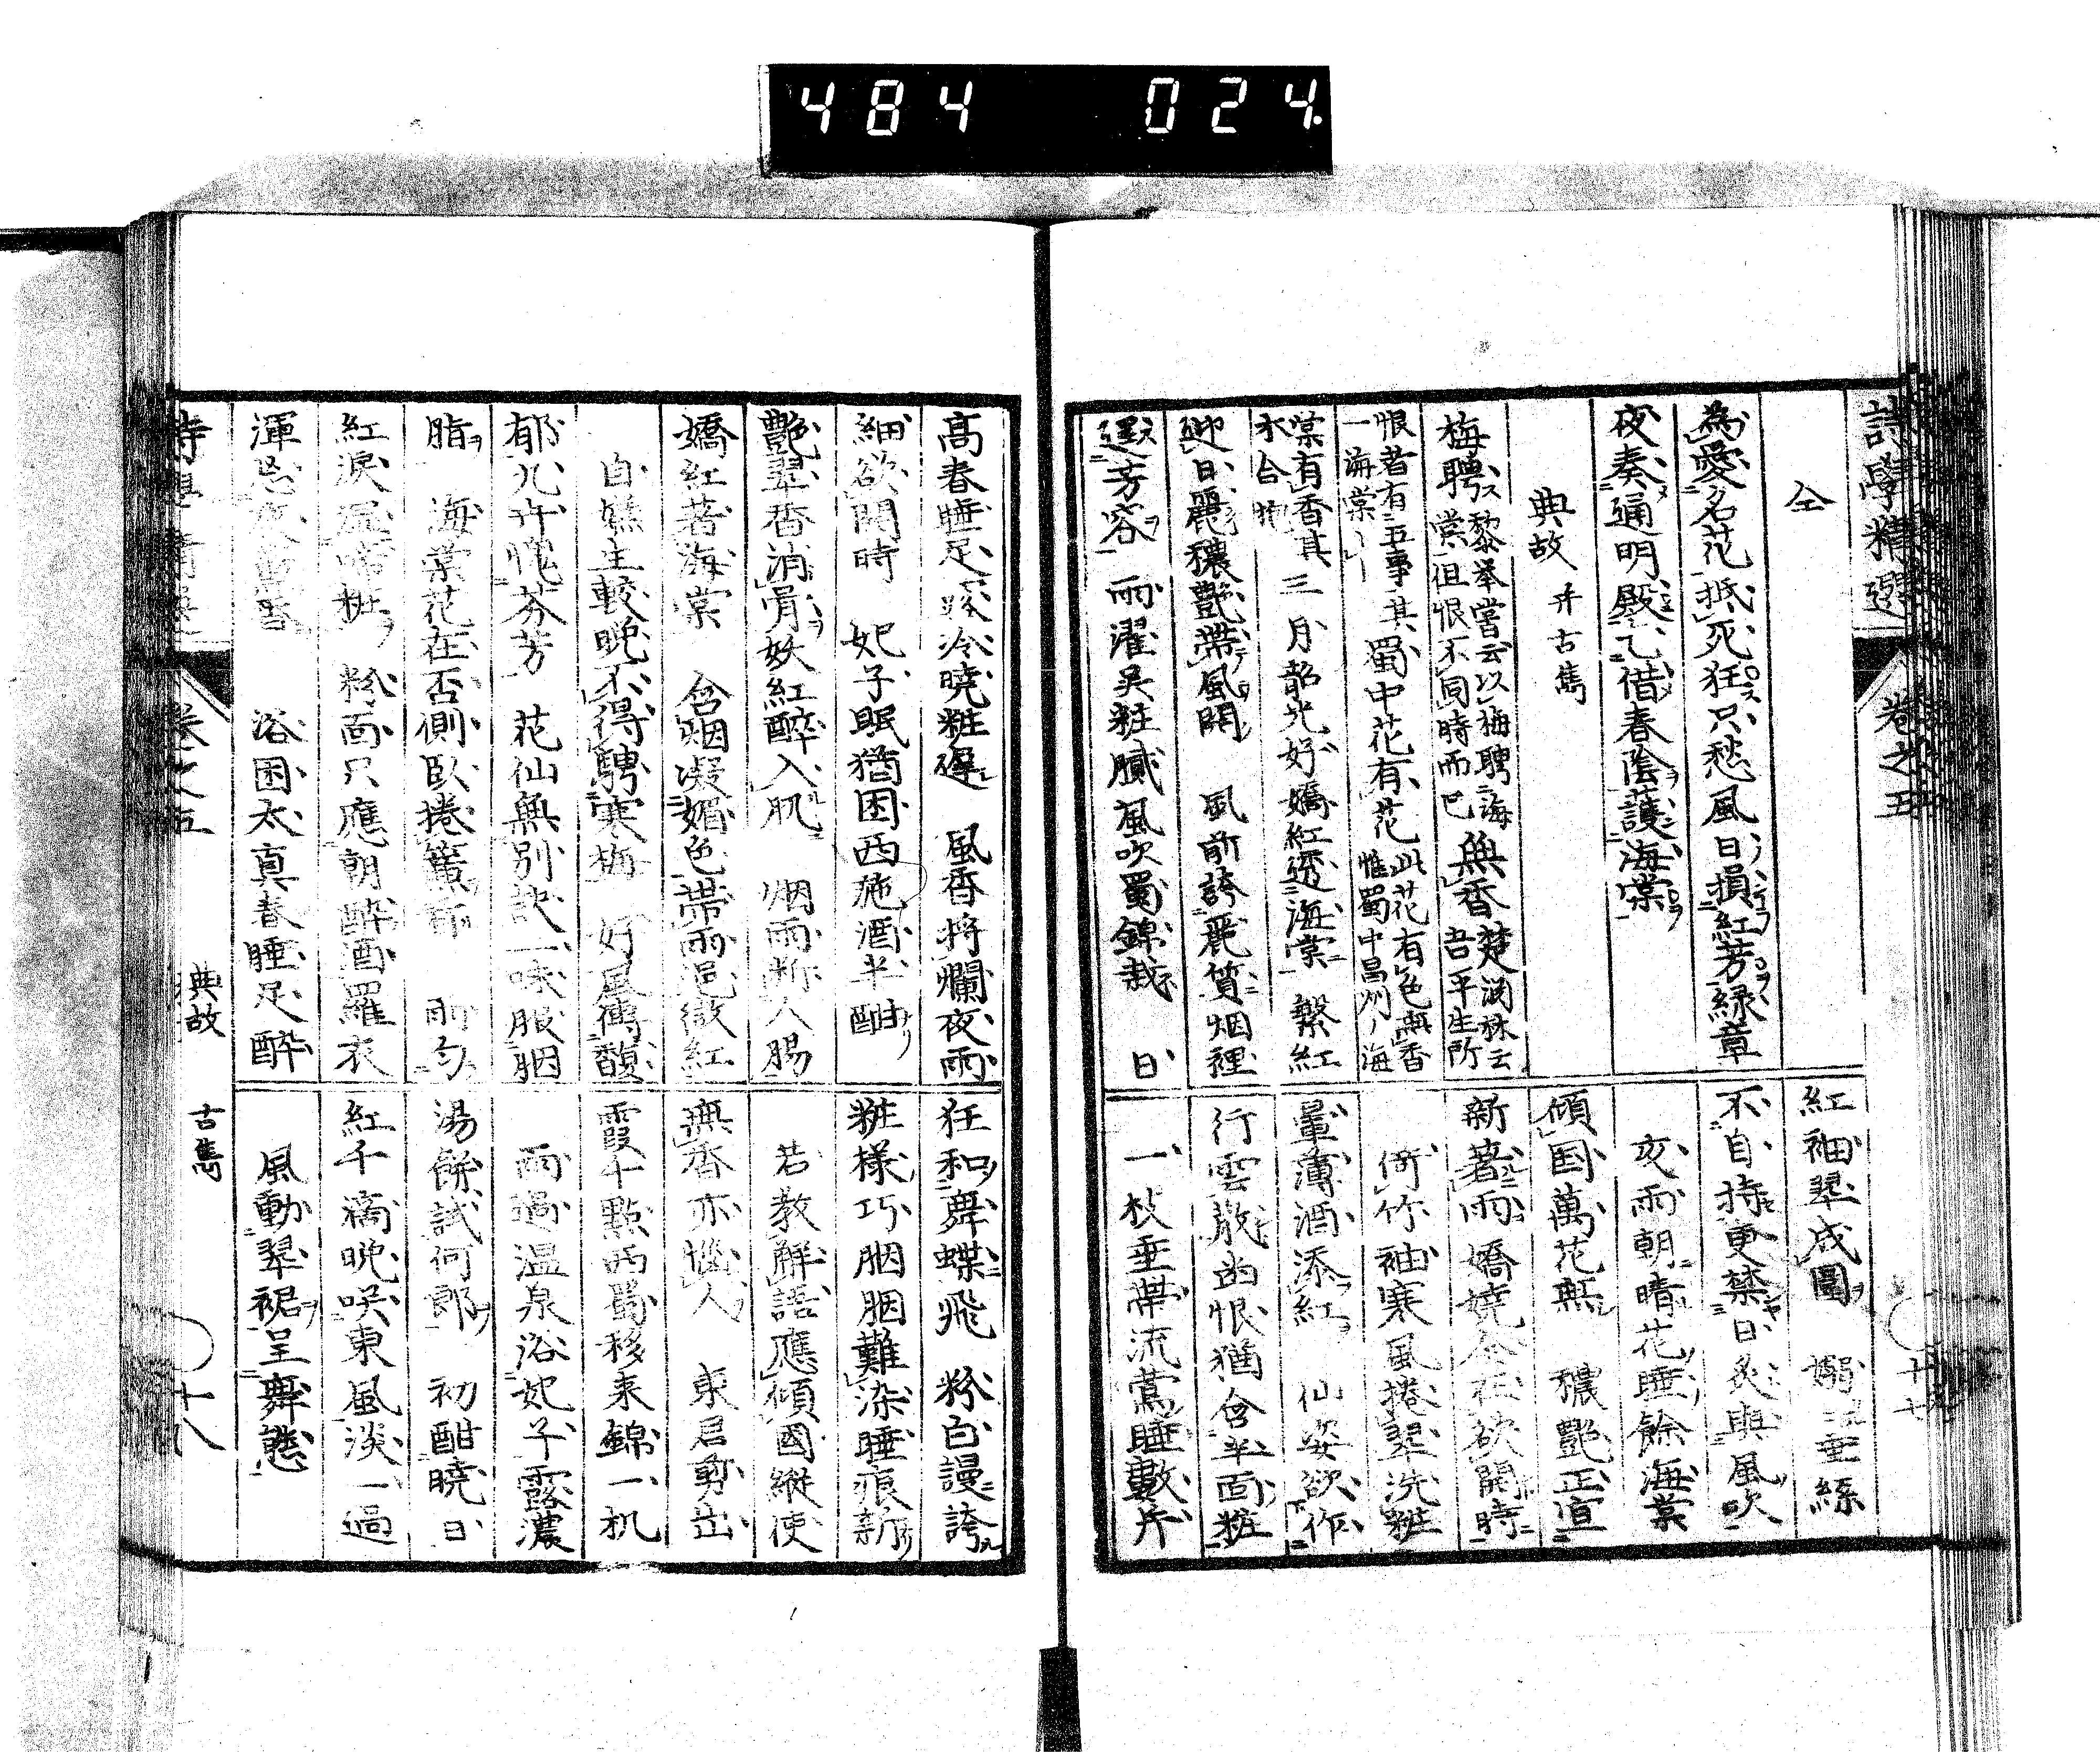 詩學精選 卷之五
仝
為愛名花抵死狂只愁風日損紅芳緑章
夜奏通明殿乞借春陰護海棠
典故 并古雋
梅聘 黎举嘗云以梅聘海
棠但恨不同時而已 無香 楚淵材云
吾平生所
恨者有五事其
一海棠 蜀中花有花 此花有色無香
惟蜀中昌州ノ海
棠有香其
木合抱 三月韶光好嬌紅透海棠 繫紅
迎日麗穠艷帶風開 風前誇麗質烟裡
逞芳容 雨濯吳粧膩風吹蜀錦裁 日
紅袖翠成圍 嫋嫋垂絲
不自持更禁日炙與風吹
夜雨朝晴花睡餘海棠
傾国萬花無 穠艷正宜
新著雨嬌嬈全在欲開時
倚竹袖寒風捲翠洗粧
暈薄酒添紅 仙姿欲作
行雲散幽恨猶含半面粧
一枝垂帶流鶯睡數片
十七
高春睡足露冷曉粧遲 風香将爛夜雨
細欲開時 妃子眠猶困西施酒半酣
艷翠香消骨妖紅醉入肌 烟雨断人腸
嬌紅著海棠 含烟凝媚色帯雨浥微紅
自嫌生較晚不得聘寒梅 好風傳馥
郁凡卉愧芬芳 花仙無別訣一味服胭
脂 海棠花在否側臥捲簾看 雨匀
紅涙濕啼粧 粉面只應朝醉酒羅衣
渾忘夜薫香 浴困太真春睡足醉
狂和舞蝶飛 粉白謾誇
粧樣巧胭胭難染睡痕新
若教解語應傾國縱使
無香亦惱人 東君剪出
霞千點西蜀移来錦一机
雨過温泉浴妃子露濃
湯餅試何郎 初酣曉日
紅千滴晩咲東風淡一過
風動翠裾呈舞態
卷之五 典故 古雋 十八
484 024